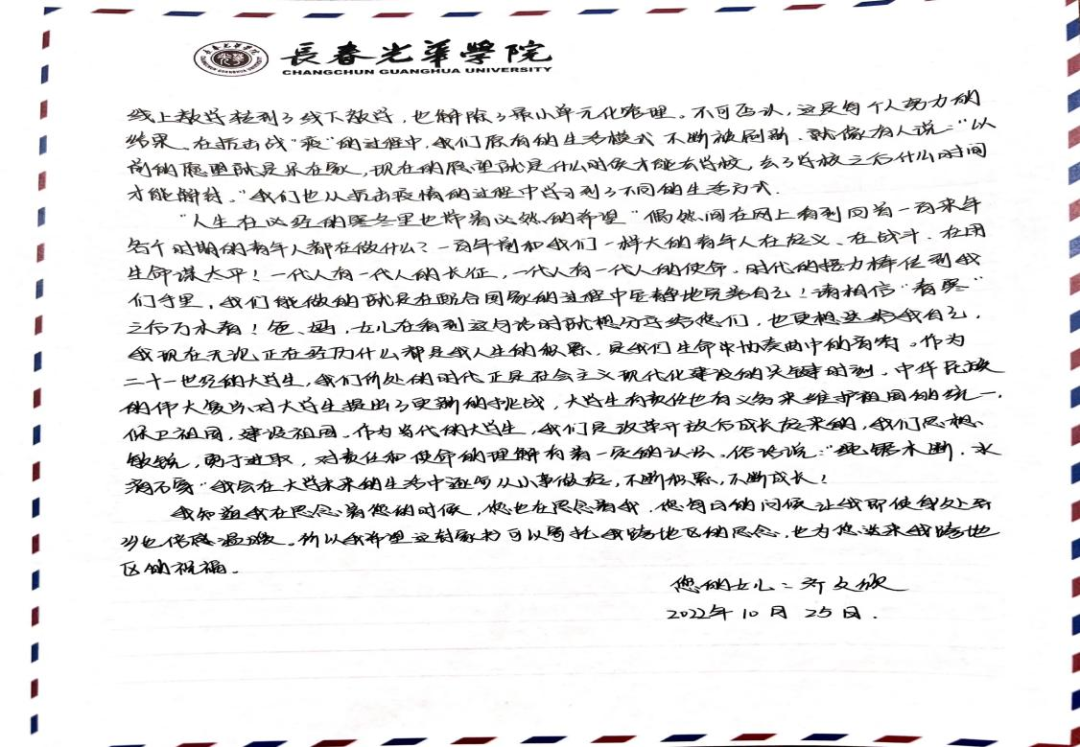 長春光華學院
CHANGCHUN GUANGHUA UNIVERSITY
线上教学转到了线下教学，也解除了最小单元化管理。不可否认，这是每个人努力的
结果。在抗击战"疫"的过程中，我们原有的生活模式不断被刷新，就像有人说："以
前的愿望就是呆在家，现在的愿望就是什么时候才能去学校，去了学校之后什么时间
才能解封。"我们也从抗击疫情的过程中学习到了不同的生活方式。
"人生在必经的寒冬里也怀着必然的希望"偶然间在网上看到回首一百来年
各个时期的青年人都在做什么？一百年前和我们一样大的青年人在起义、在战斗、在用
生命谋太平！一代人有一代人的长征，一代人有一代人的使命。时代的接力棒传到我
们手里，我们能做的就是在配合国家的过程中安静地完善自己！请相信"春寒"
之后万木春！爸、妈，女儿在看到这句话时就想分享给你们，也更想送给我自己，
我现在无论正在经历什么都是我人生的积累，是我们生命中协奏曲中的音符。作为
二十一世纪的大学生，我们所处的时代正是社会主义现代化建设的关键时刻。中华民族
的伟大复兴对大学生提出了更新的挑战，大学生有责任也有义务来维护祖国的统一，
保卫祖国，建设祖国。作为当代的大学生，我们是改革开放后成长起来的，我们思想
敏锐，勇于进取，对责任和使命的理解有着一定的认识。俗话说："绳锯木断，水
滴石穿"我会在大学未来的生活中逐步从小事做起，不断积累，不断成长！
我知道我在思念着您的时候，您也在思念着我，您每日的问候让我即使身处
也倍感温暖。所以我希望这封家书可以寄托我跨地区的思念，也为您送来我跨地
区的祝福。
您的女儿：文欣
2022年10月25日.